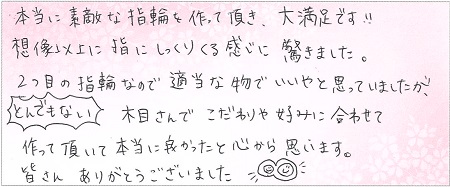 本当に素敵な指輪を作って頂き、大満足です!!
想像以上に指にしっくりくる感じに驚きました。
2つ目の指輪なので適当な物でいいやと思っていましたが、
とんでもない 木目さんでこだわりや好みに合わせて
作って頂いて本当に良かったと心から思います。
皆さんありがとうございました